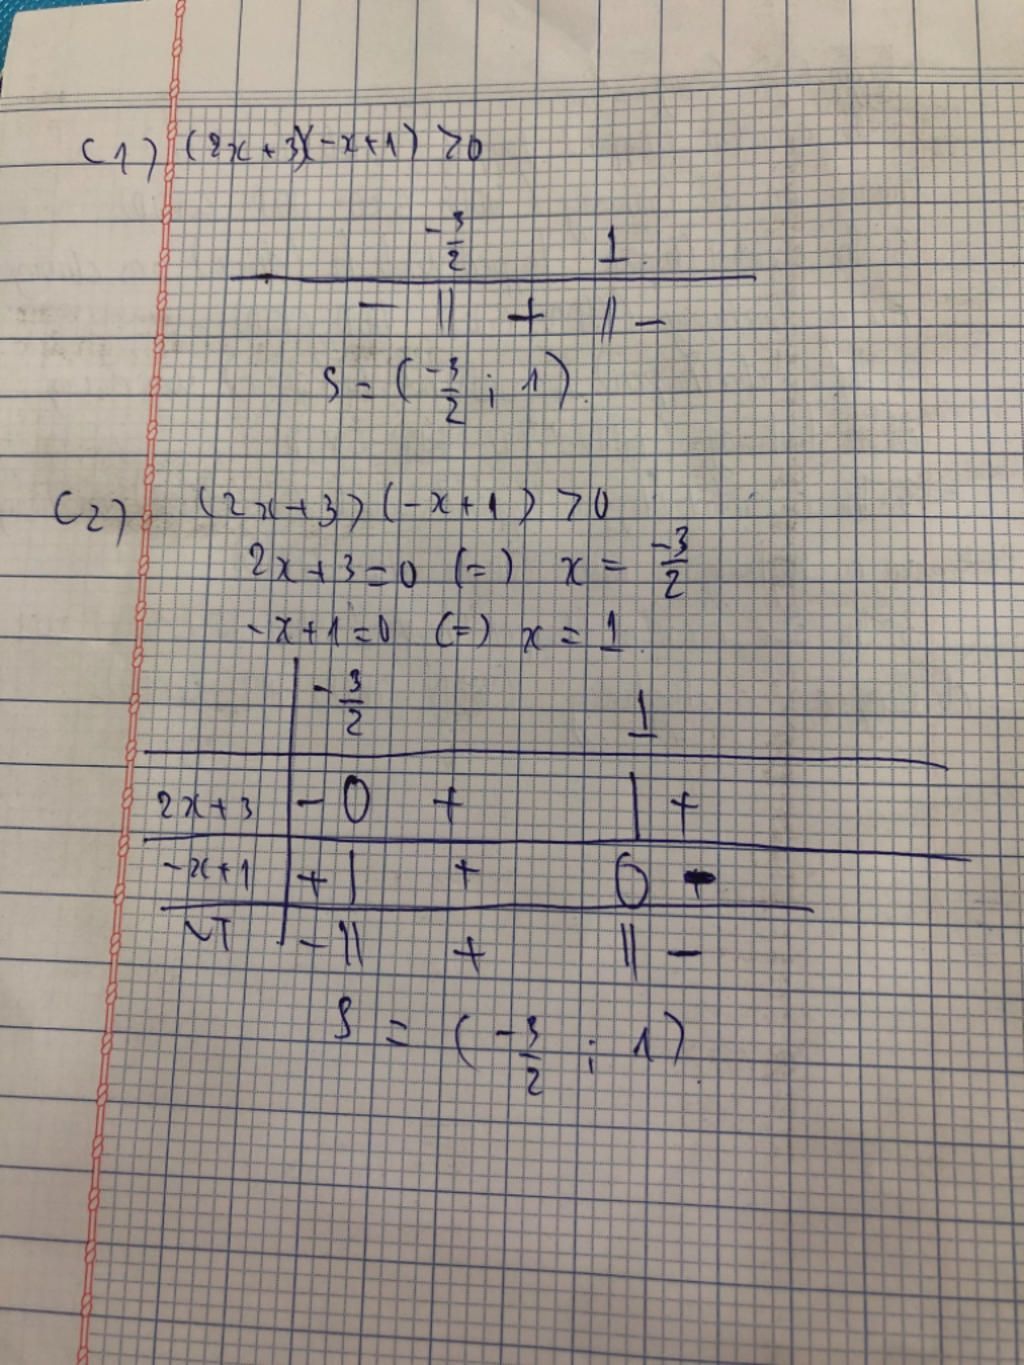 C1) (2x+3)(-x+1) >0
-3/2 1
- || + || -
S = (-3/2 ; 1).
C2) (2x+3)(-x+1) >0
2x+3=0 (=) x = -3/2
-x+1=0 (=) x = 1.
-3/2 1
2x+3 - 0 + | +
-x+1 + | + 0 -
VT - || + || -
S = (-3/2 ; 1).